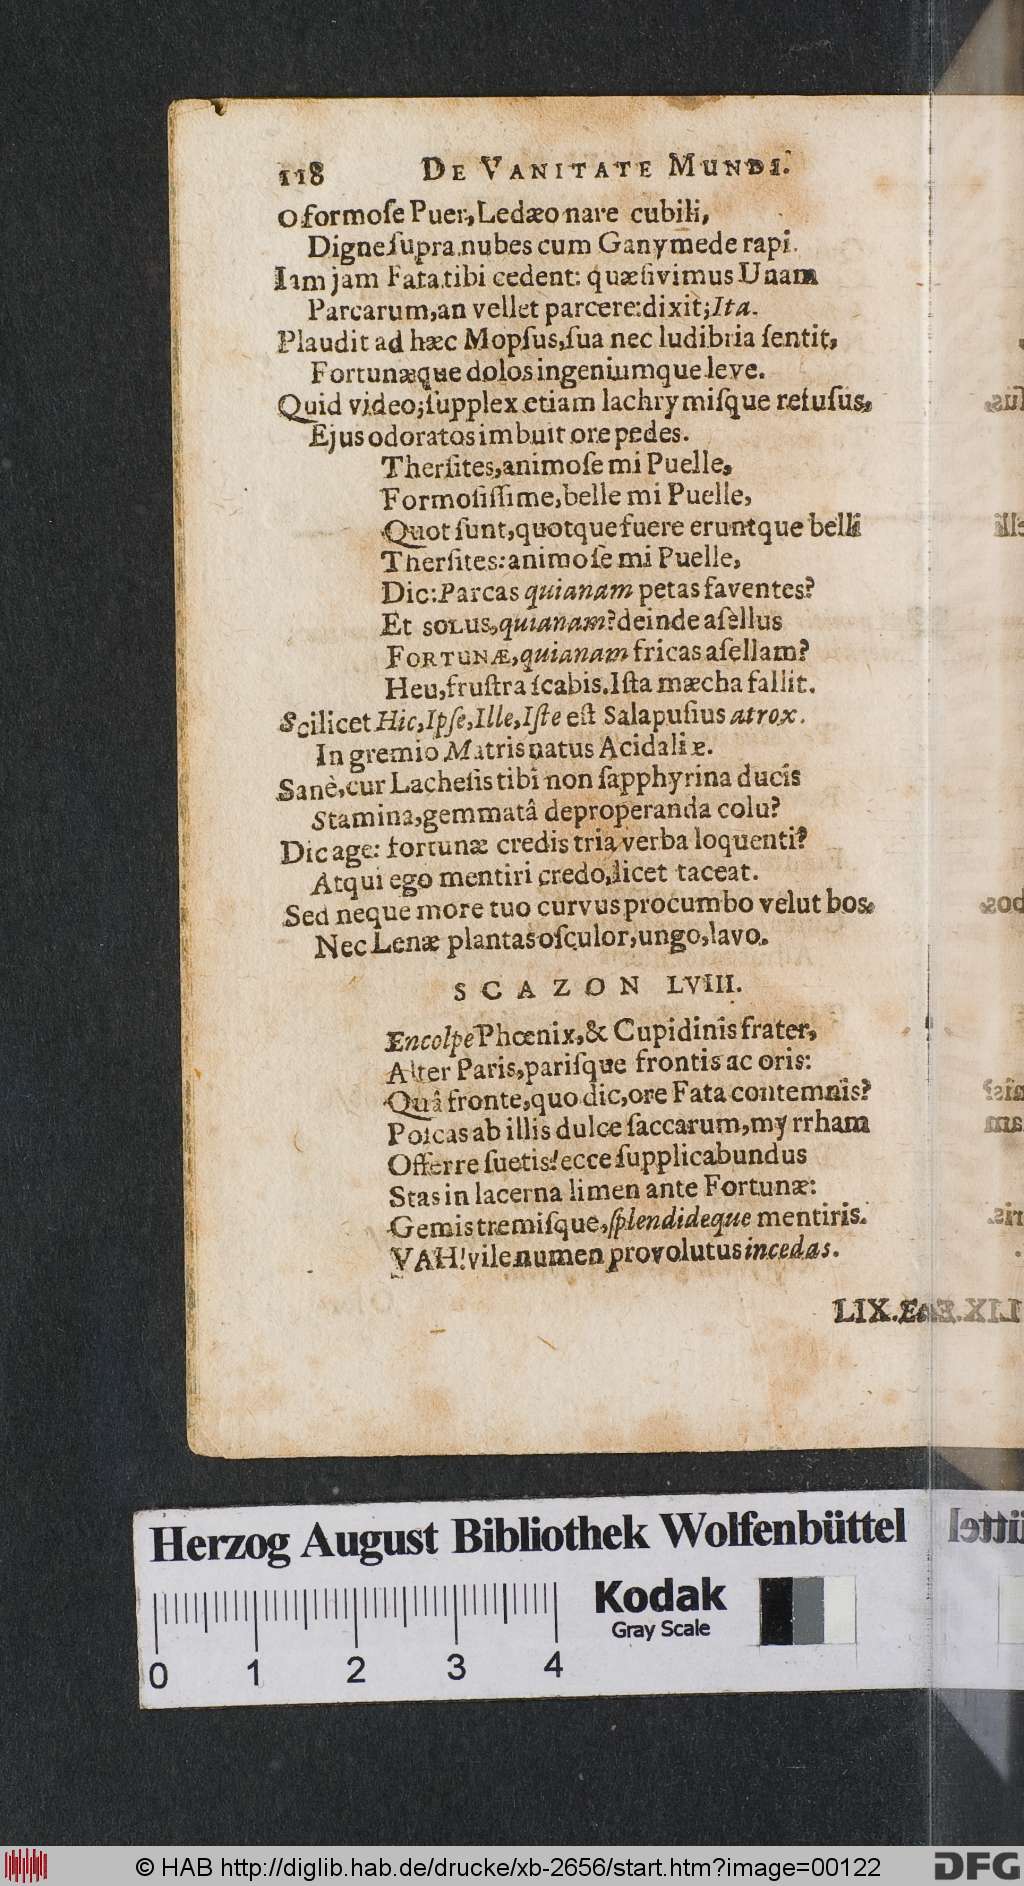 118 DE VANITATE MUNDI.
O formoſe Puer, Ledæo nare cubili,
Digne ſupra nubes cum Ganymede rapi.
Iam jam Fata tibi cedent: quæſivimus Unam
Parcarum, an vellet parcere: dixit; Ita.
Plaudit ad hæc Mopſus, ſua nec ludibria ſentit,
Fortunæque dolos ingeniumque leve.
Quid video; ſupplex etiam lachrymiſque refuſus,
Ejus odoratos imbuit ore pedes.
Therſites, animoſe mi Puelle,
Formoſiſſime, belle mi Puelle,
Quot ſunt, quotque fuere eruntque belli
Therſites: animoſe mi Puelle,
Dic: Parcas quianam petas faventes?
Et SOLUS, quianam? deinde aſellus
FORTUNÆ, quianam fricas aſellam?
Heu, fruſtra ſcabis. Iſta mæcha fallit.
Scilicet Hic, Ipſe, Ille, Iſte eſt Salapuſius atrox.
In gremio Matris natus Acidaliæ.
Sanè, cur Lacheſis tibi non ſapphyrina ducis
Stamina, gemmatâ deproperanda colu?
Dic age: fortunæ credis tria verba loquenti?
Atqui ego mentiri credo, licet taceat.
Sed neque more tuo curvus procumbo velut bos,
Nec Lenæ plantas oſculor, ungo, lavo.
SCAZON LVIII.
Encolpe Phœnix, & Cupidinis frater,
Alter Paris, pariſque frontis ac oris:
Quâ fronte, quo dic, ore Fata contemnis?
Poſcas ab illis dulce ſaccarum, myrrham
Offerre ſuetis! ecce ſupplicabundus
Stas in lacerna limen ante Fortunæ:
Gemis tremiſque, ſplendideque mentiris.
VAH! vile numen provolutus incedas.
LIX.
Herzog August Bibliothek Wolfenbüttel
Kodak
Gray Scale
0 1 2 3 4
© HAB http://diglib.hab.de/drucke/xb-2656/start.htm?image=00122
DFG